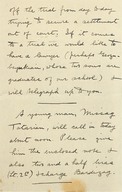 off the trial from day to day
trying to secure a settlement
out of court. If it comes
to a trial we would like to
have a lawyer (perhaps George
, whose two sons are
graduates of our school)
will telegraph up to you.
A young man, Missag
Totarian, will call on thee
about noon. Please give
him the enclosed note. I
also two and a half liras
(Lt. 2.50) I charge Bardizag